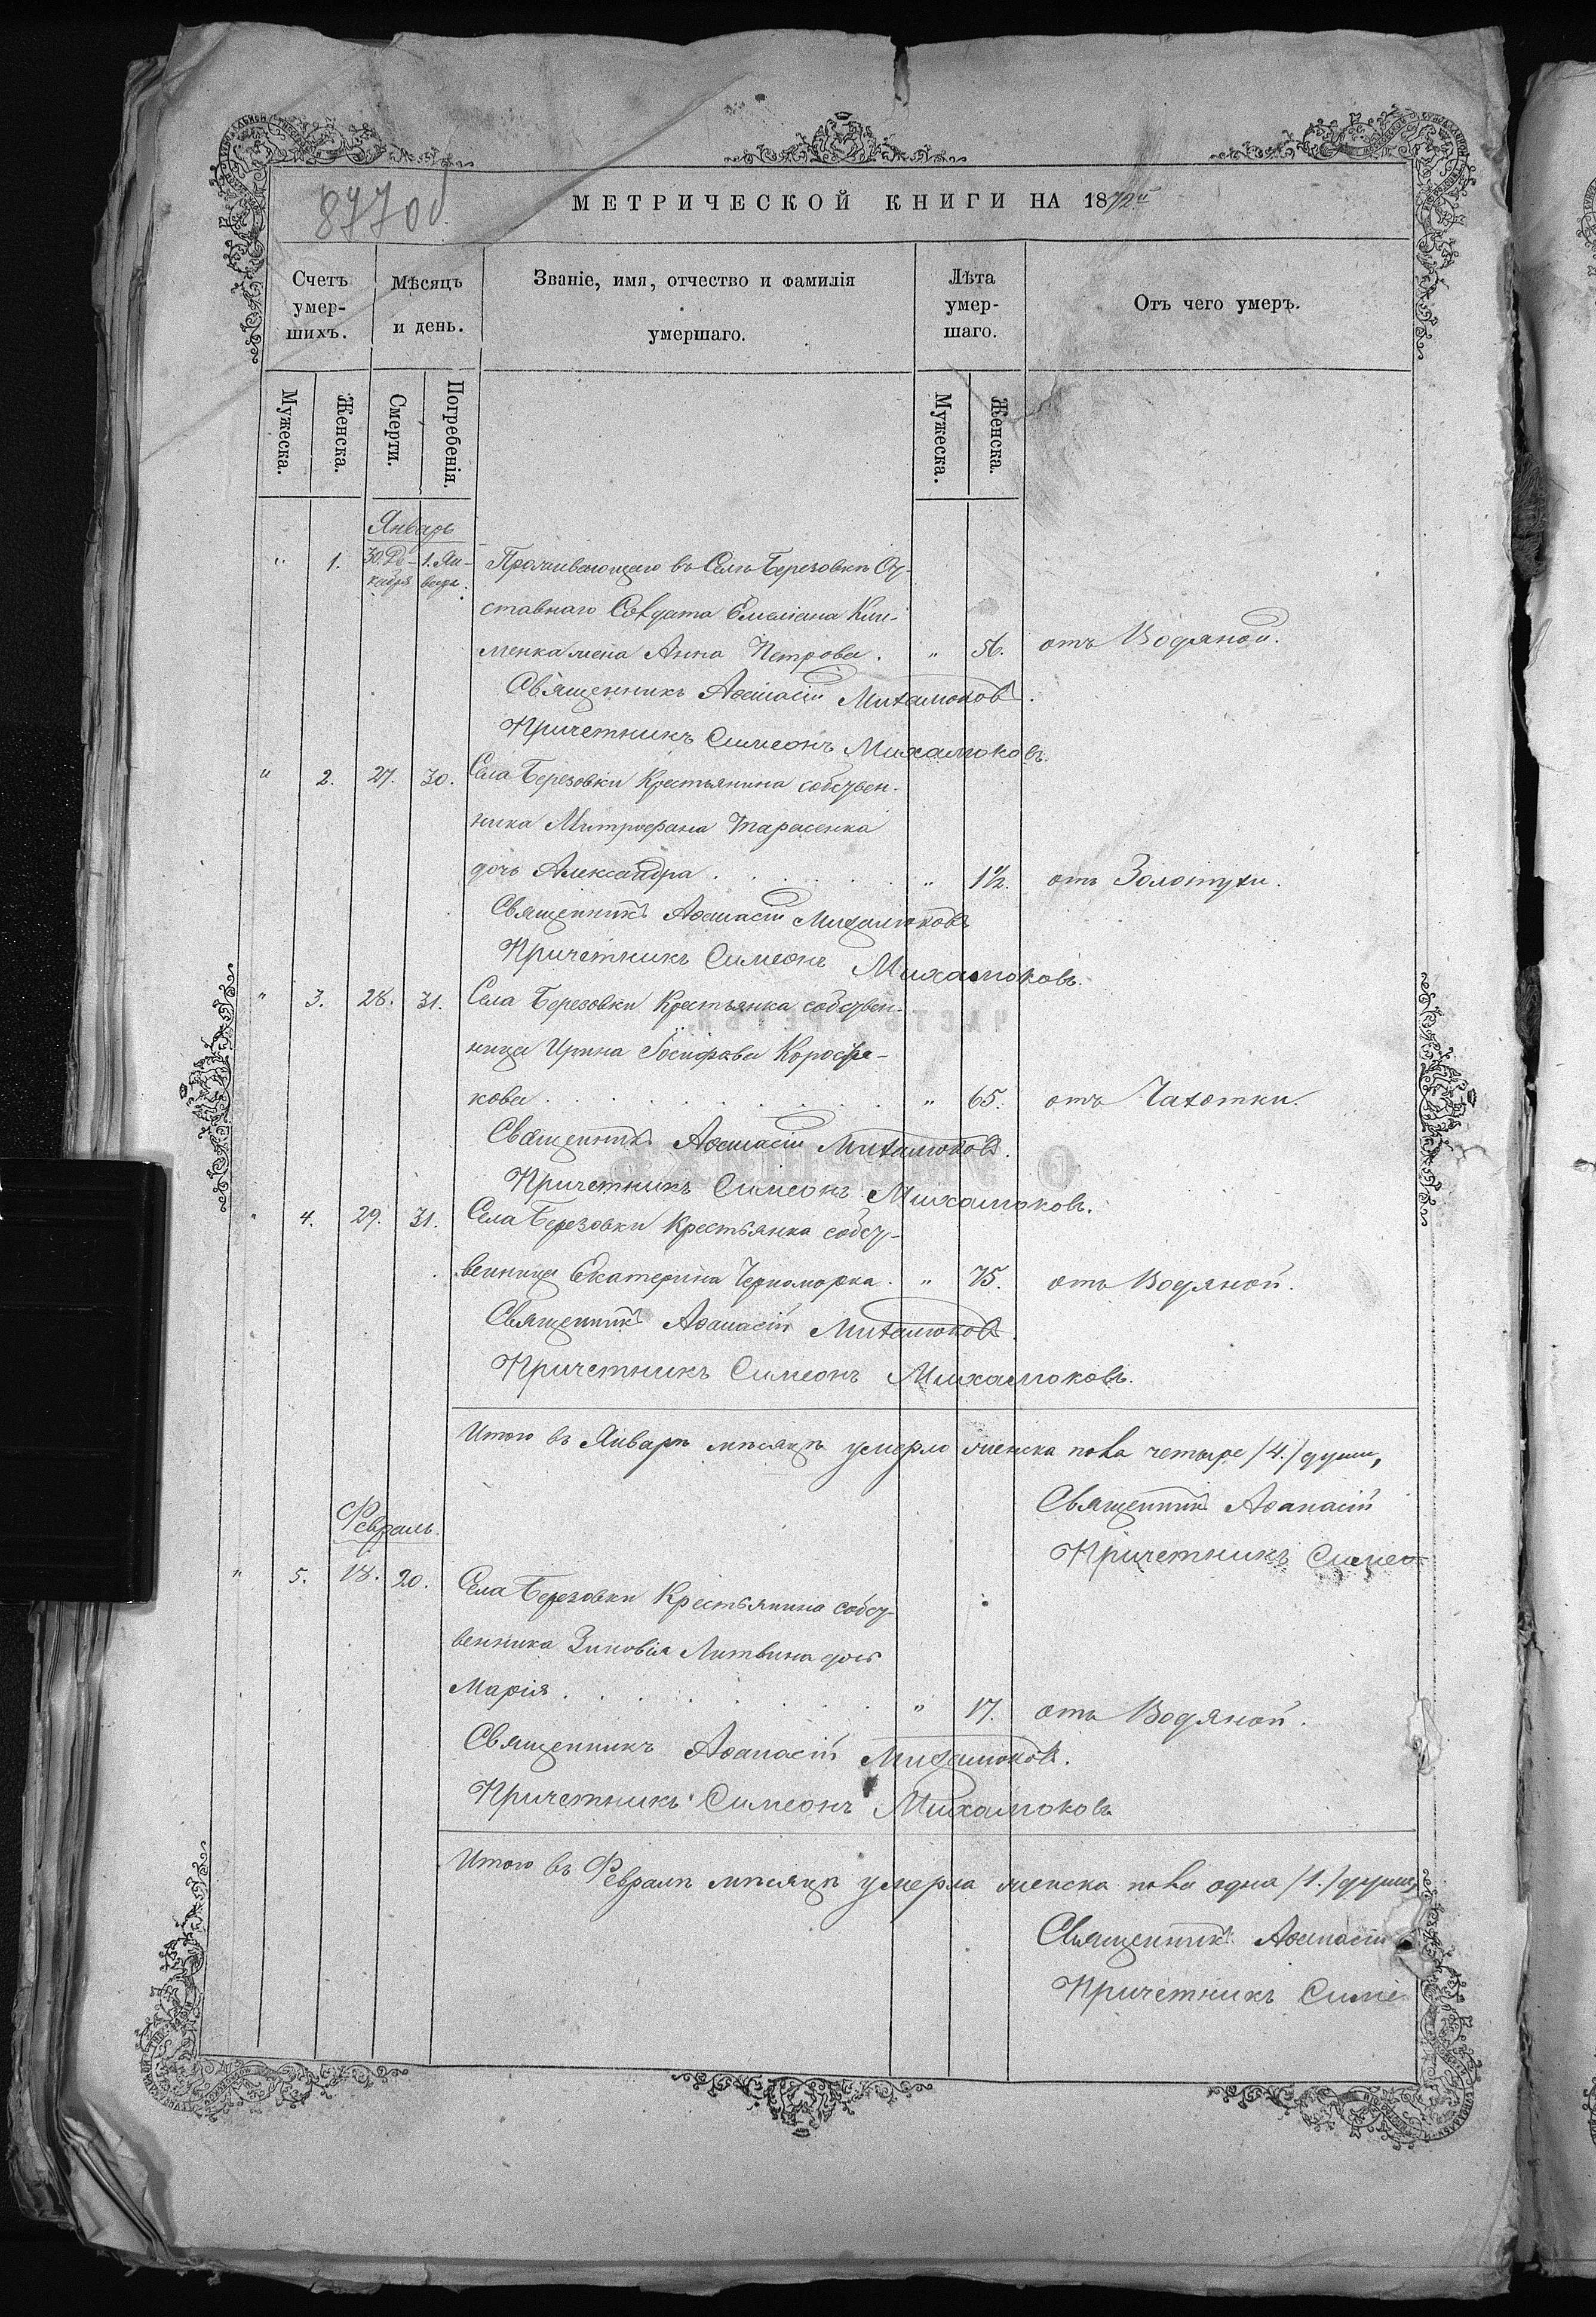 8770
МЕТРИЧЕСКОЙ КНИГИ НА 1872й
Счетъ умер-шихъ.
Мѣсяцъ и день.
Званіе, имя, отчество и фамилія умершаго.
Лѣта умер-шаго.
Отъ чего умеръ.
Мужеска. Женска. Смерти. Погребенія. Мужеска. Женска.
Январь
" 1. 30. Де- 1. Ян- Проживающаго въ Селѣ Березовкѣ От-
кабря варя. ставнаго Солдата Емеліана Кли-
менка жена Анна Петрова. " 56. отъ Водяной.
Священникъ Аѳанасій Михалюковъ.
Причетникъ Симеонъ Михалюковъ.
" 2. 27. 30. Села Березовки Крестьянина собствен-
ника Митрофана Тарасенка
дочь Александра . . . . . " 1½. отъ Золотухи.
Священникъ Аѳанасій Михалюковъ
Причетникъ Симеонъ Михалюковъ.
" 3. 28. 31. Села Березовки Крестьянка собствен-
ница Ирина Іосифова
кова . . . . . . . " 65. отъ Чахотки.
Священникъ Аѳанасій Михалюковъ.
Причетникъ Симеонъ Михалюковъ.
" 4. 29. 31. Села Березовки Крестьянка собст-
венница Екатерина Черноморка. " 75. отъ Водяной.
Священникъ Аѳанасій Михалюковъ.
Причетникъ Симеонъ Михалюковъ.
Итого въ Январѣ мѣсяцѣ умерло женска пола четыре /4./ души,
Священникъ Аѳанасій
Причетникъ Симео-
Февраль.
" 5. 18. 20. Села Березовки Крестьянина собст-
венника Зиновія Литвина дочь
Марія . . . . . . . " 17. отъ Водяной.
Священникъ Аѳанасій Михалюковъ.
Причетникъ Симеонъ Михалюковъ
Итого въ Февралѣ мѣсяцѣ умерла женска пола одна /1./ душа,
Священникъ Аѳанасій
Причетникъ Симе